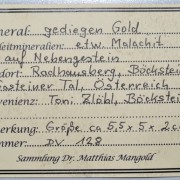 neral: gediegen Gold
leitmineralien: etw. Malachit
auf Nebengestein
dort: Radhausberg, Böckstein
asteiner Tal, Österreich
venienz: Toni Zlöbl, Böckstein
erkung: Größe ca 5,5 x 5 x 2c
mmer: DV 128
Sammlung Dr. Matthias Mangold